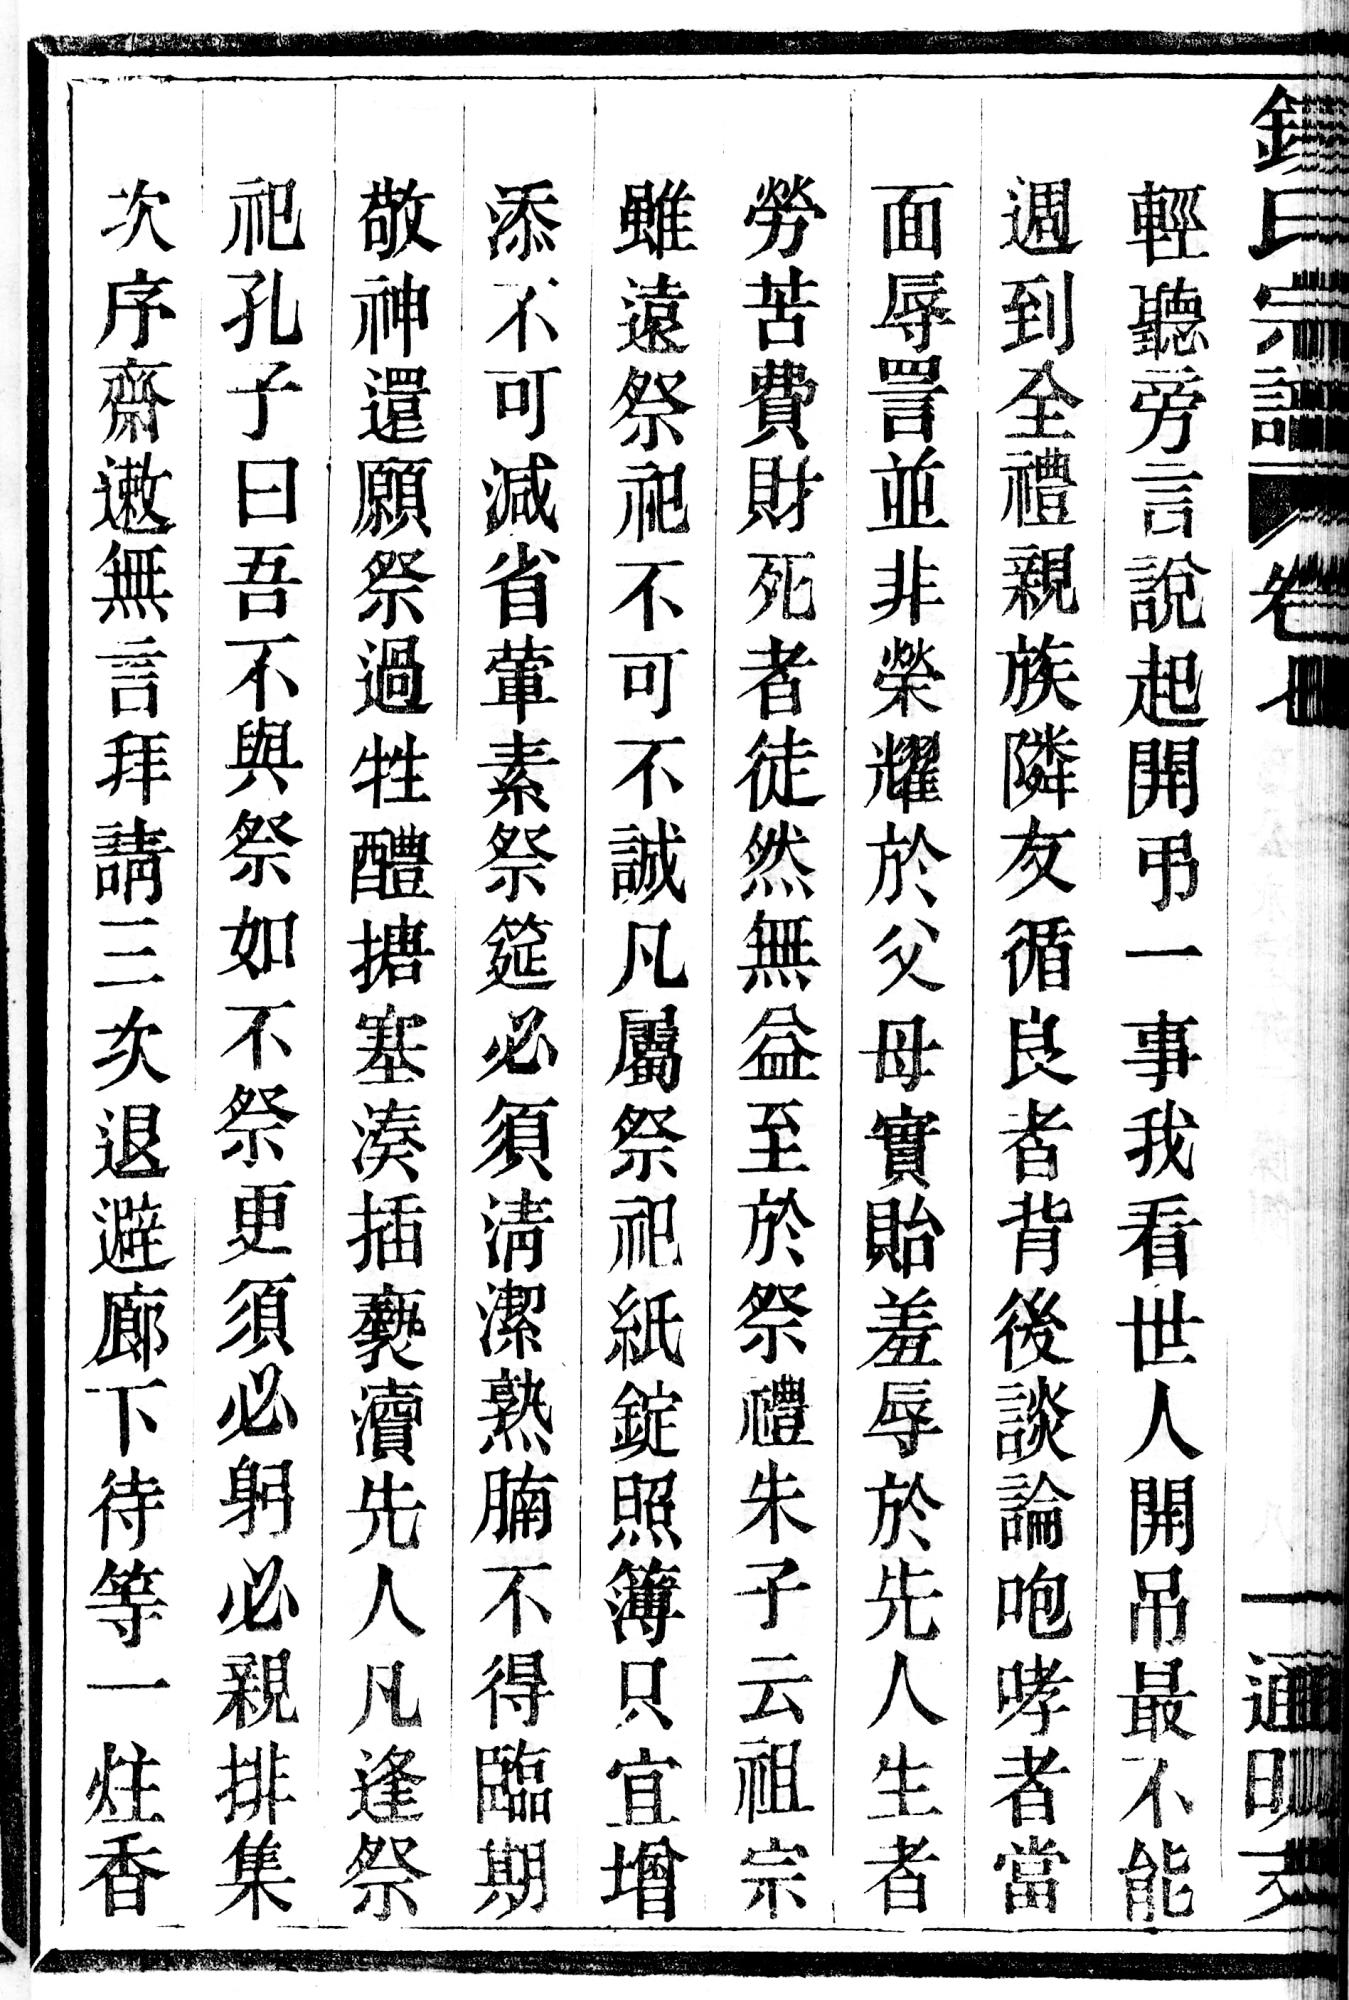 輕聽旁言說起開弔一事我看世人開吊最不能
週到全禮親族隣友循良者背後談論咆哮者當
面辱詈並非榮耀於父母實貽羞辱於先人生者
勞苦費財死者徒然無益至於祭禮朱子云祖宗
雖遠祭祀不可不誠凡屬祭祀紙錠照簿只宜增
添不可減省葷素祭筵必須清潔熟腩不得臨期
敬神還願祭過牲醴搪塞湊插褻瀆先人凡逢祭
祀孔子曰吾不與祭如不祭更須必躬必親排集
次序齋遬無言拜請三次退避廊下待等一炷香
氏宗譜 卷七 一 通明支